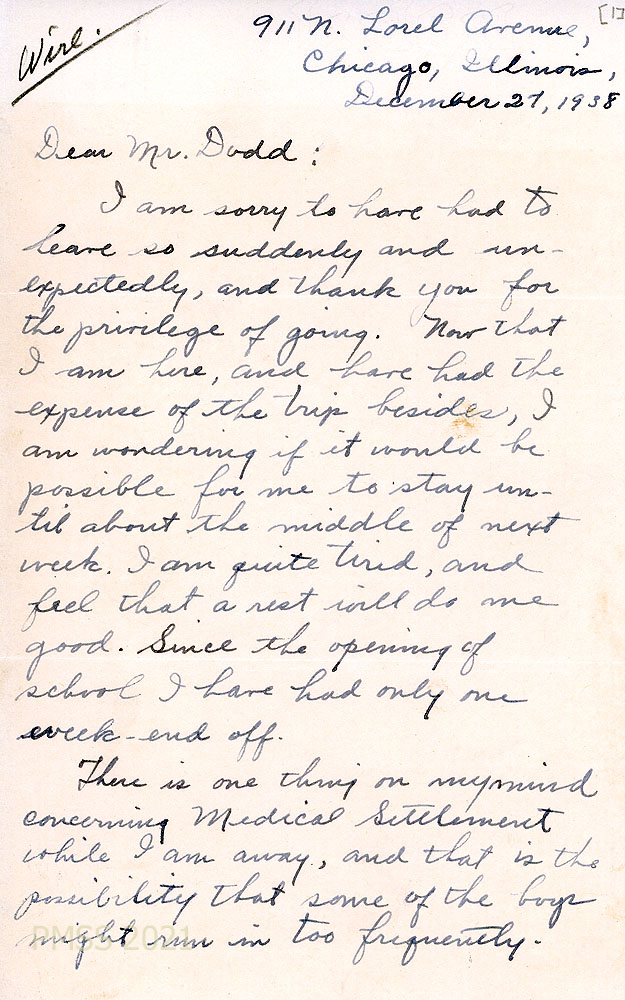 [1]
Wire.
911 N. Lorel Avenue,
Chicago, Illinois,
December 27, 1938
Dear Mr. Dodd:
I am sorry to have had to
leave so suddenly and un-
expectedly, and thank you for
the privilege of going. Now that
I am here, and have had the
expense of the trip besides, I
am wondering if it would be
possible for me to stay un-
til about the middle of next
week. I am quite tired, and
feel that a rest will do me
good. Since the opening of
school I have had only one
week-end off.
There is one thing on my mind
concerning Medical Settlement
while I am away, and that is the
possibility that some of the boys
might run in too frequently.
PMSS 2021